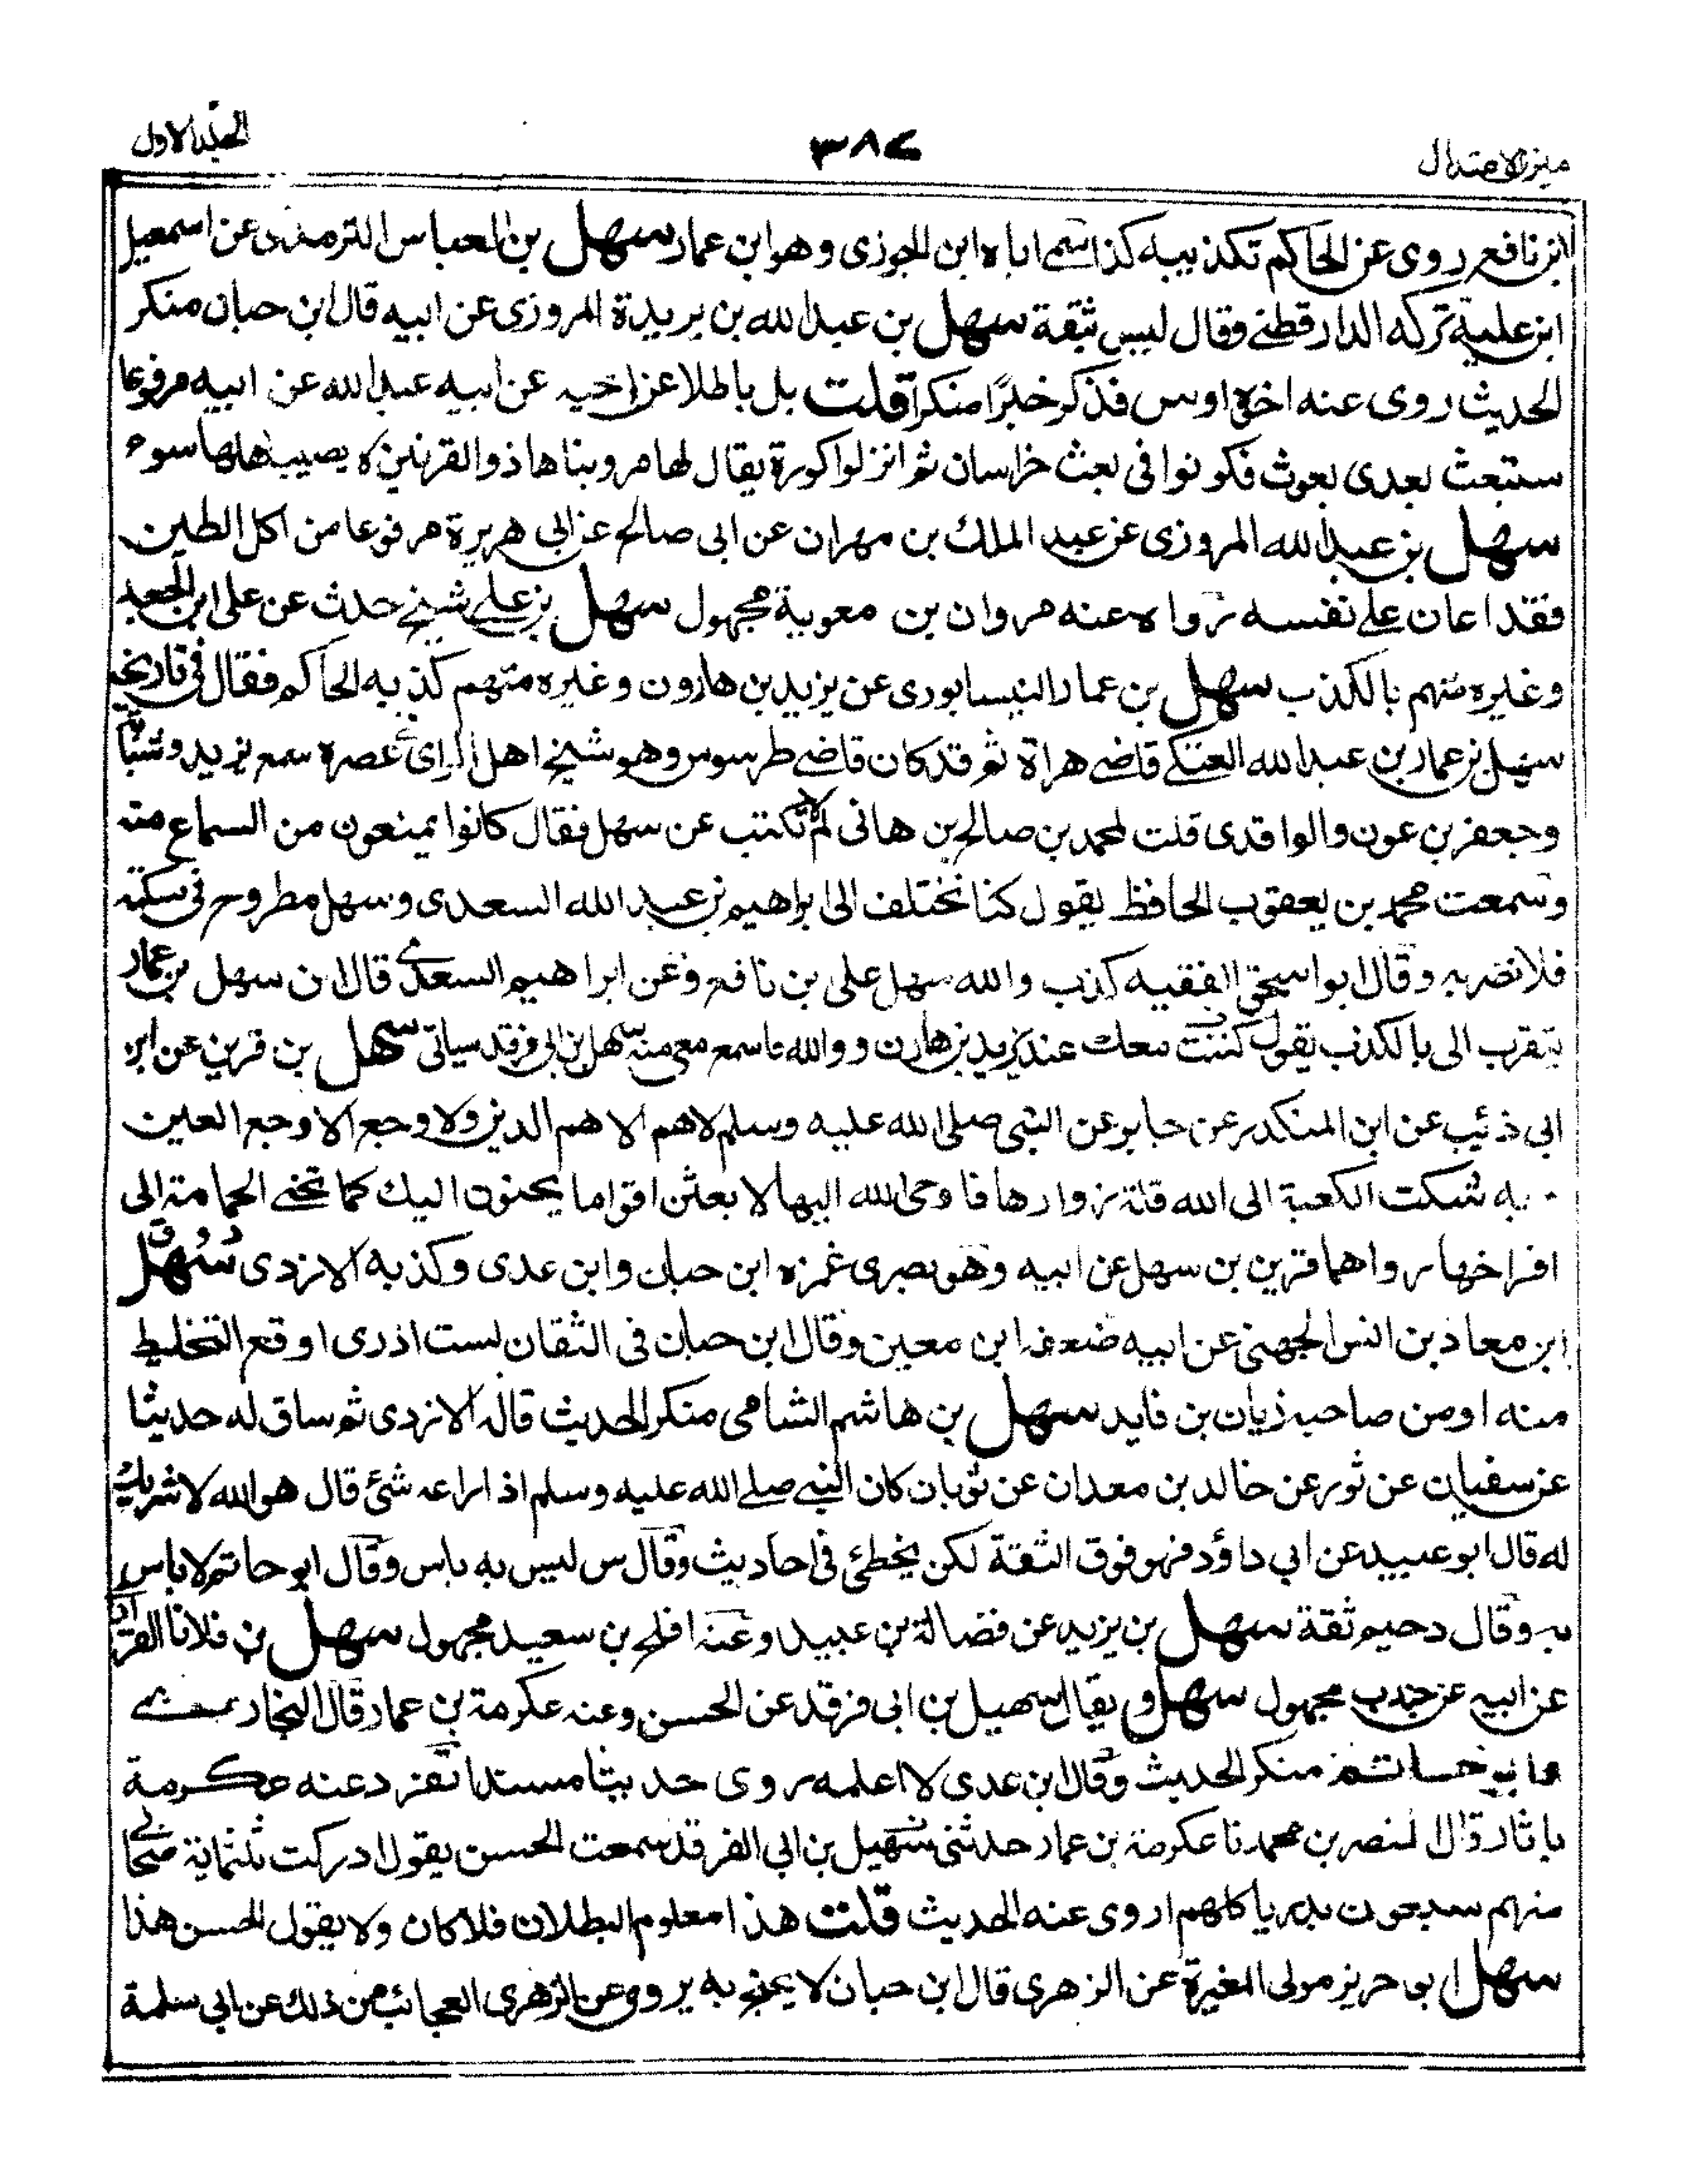 ميزان الاعتدال
٣٨٧
الجلد الاول
ابن نافع روى عن الحاكم تكذيبه كذا سمى اباه ابن الجوزى وهو ابن عمار سهل بن العباس الترمذى عن اسمعيل
ابن علية تركه الدارقطنے وقال ليس بثقة سهل بن عبد الله بن بريدة المروزى عن ابيه قال ابن حبان منكر
الحديث روى عنه اخوه اوس فذكر خبرًا منكرا قلت بل باطلا عن اخيه عن ابيه عبد الله عن ابيه مرفوعا
ستبعث بعدى بعوث فكونوا فى بعث خراسان ثم انزلوا كورة يقال لها مرو بناها ذو القرنين لا يصيب اهلها سوء
سهل بن عبد الله المروزى عن عبد الملك بن مهران عن ابى صالح عن ابى هريرة مرفوعا من اكل الطين
فقد اعان علے نفسه رواه عنه مروان بن معوية مجهول سهل بن علے شيخ حدث عن على ابن الجعد
وغيره متهم بالكذب سهل بن عمار النيسابورى عن يزيد بن هارون وغيره متهم كذبه الحاكم فقال فى تاريخه
سهل بن عمار بن عبد الله العتكے قاضے هراة ثم قد كان قاضے طرسوس وهو شيخ اهل الراى فے عصره سمع يزيد وشبابة
وجعفر بن عون والواقدى قلت لمحمد بن صالح بن هانى لم لا تكتب عن سهل فقال كانوا يمنعون من السماع منه
وسمعت محمد بن يعقوب الحافظ يقول كنا نختلف الى ابراهيم بن عبد الله السعدى وسهل مطروح فى سكته
فلا نقربه وقال ابو اسحق الفقيه كذب والله سهل على بن نافع وعن ابراهيم السعدے قال ان سهل بن عمار
يتقرب الى بالكذب يقول كتبت معك عند يزيد بن هارن و والله ما سمع معى منه سهل بن ابى فرقد سياتى سهل بن قرين عن ابن
ابى ذئب عن ابن المنكدر عن جابر عن النبى صلى الله عليه وسلم لا هم الا هم الدين ولا وجع الا وجع العين
به شكت الكعبة الى الله قلة زوارها فاوحى الله اليها لابعثن اقواما يحنون اليك كما تحنے الحمامة الى
افراخها رواهما قرين بن سهل عن ابيه وهو بصرى غمزه ابن حبان وابن عدى وكذبه الازدى سهل
ابن معاذ بن انس الجهنى عن ابيه ضعفه ابن معين وقال ابن حبان فى الثقات لست ادرى اوقع التخليط
منه او من صاحبه زبان بن فايد سهل بن هاشم الشامى منكر الحديث قاله الازدى ثم ساق له حديثا
عن سفيان عن ثور عن خالد بن معدان عن ثوبان كان النبے صلے الله عليه وسلم اذا راعه شئ قال هو الله لا شريك
له قال ابو عبيد عن ابى داؤد فهو فوق الثقة لكن يخطئ فى احاديث وقال س ليس به باس وقال ابو حاتم لا باس
به وقال دحيم ثقة سهل بن يزيد عن فضالة بن عبيد وعنه افلح بن سعيد مجهول سهل بن فلان الفزارى
عن ابيه عن جندب مجهول سهل ويقال سهيل بن ابى فرقد عن الحسن وعنه عكرمة بن عمار قال البخارى
وابو حاتم منكر الحديث وقال ابن عدى لا اعلمه روى حديثا مسندا تفرد عنه عكرمة
باثار قال النضر بن محمد نا عكرمة بن عمار حدثنى سهيل بن ابى الفرقد سمعت الحسن يقول ادركت ثلثماية صحابى
منهم سبعون بدريا كلهم اروى عنه الحديث قلت هذا معلوم البطلان فلا كان ولا يقول الحسن هذا
سهل ابو حريز مولى المغيرة عن الزهرى قال ابن حبان لا يحتج به يروى عن الزهرى العجائب من ذلك عن ابى سلمة